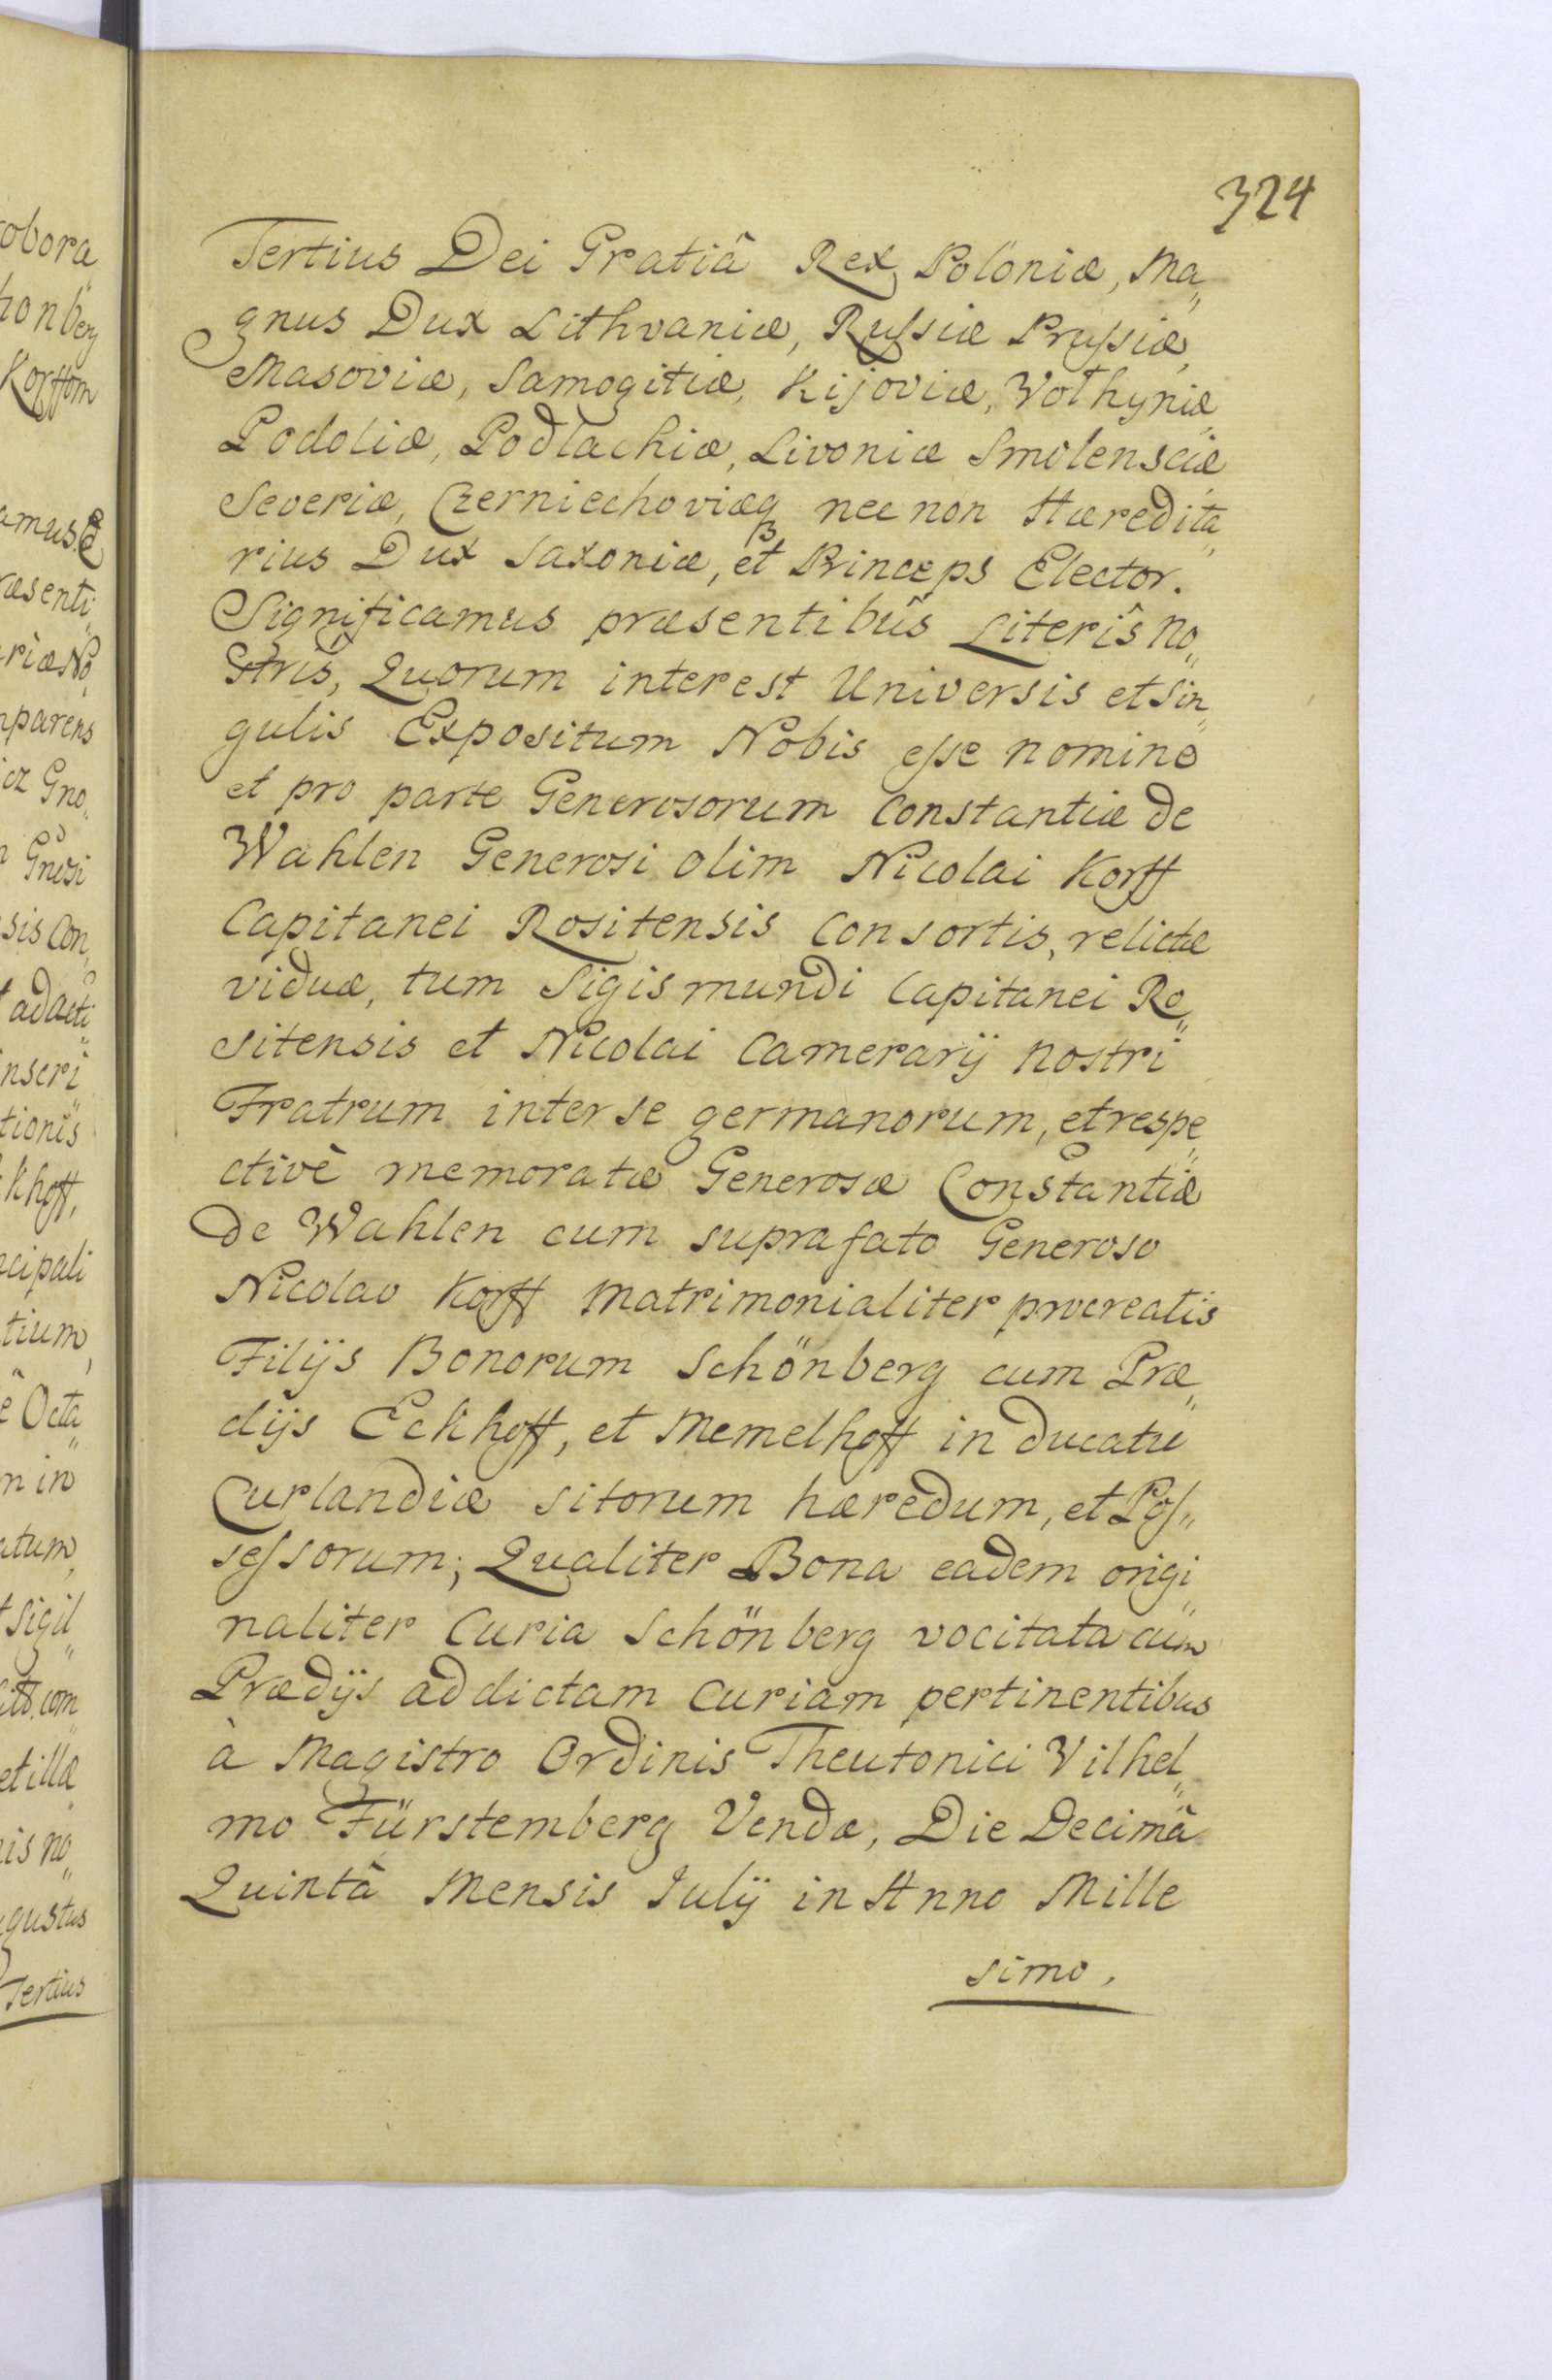 324
Tertius Dei Gratiâ Rex Poloniæ, Ma„
gnus Dux Lithvaniæ, Russiæ Prussiæ,
Masoviæ, Samogitiæ, Kijoviæ, Volhyniæ,
Podoliæ, Podlachiæ, Livoniæ Smolensciæ
Severiæ, Czerniechoviæq nec non Hæredita„
rius Dux Saxoniæ, et Princeps Elector.
Significamus præsentibûs Literîs No„
stris, Quorum interest Universis et Sin„
gulis Expositum Nobis esse nomine
et pro parte Generosorum Constantiæ de
Wahlen Generosi olim Nicolai Korff
Capitanei Rositensis Consortis, relictæ
viduæ, tum Sigismundi Capitanei Ro„
sitensis et Nicolai Camerarij Nostri
Fratrum inter se germanorum, et respe„
ctivè memoratæ Generosæ Constantiæ
de Wahlen cum suprafato Generoso
Nicolao Korff Matrimonialiter procreatis
Filijs Bonorum Schönberg cum Præ„
dijs Eckhoff, et Memelhoff in Ducatu
Curlandiæ sitorum hæredum, et Pos„
sessorum; Qualiter Bona eadem origi„
naliter Curia Schönberg vocitata cum
Prædijs ad dictam Curiam pertinentibus
à Magistro Ordinis Theutonici Vilhel„
mo Fürstemberg Vendæ, Die Decimâ
Quintâ Mensis Julij in Anno Mille
simo,
obora
honberg
Korffom
amus. E
æsenti„
riæ No„
parens
Gno„
Gnosi
sis Con„
adacti„
inseri„
tionis
khoff,
ncipali
tium,
Octa„
n in
atum,
Sigil„
com„
et illæ
is no„
gustus
Tertius